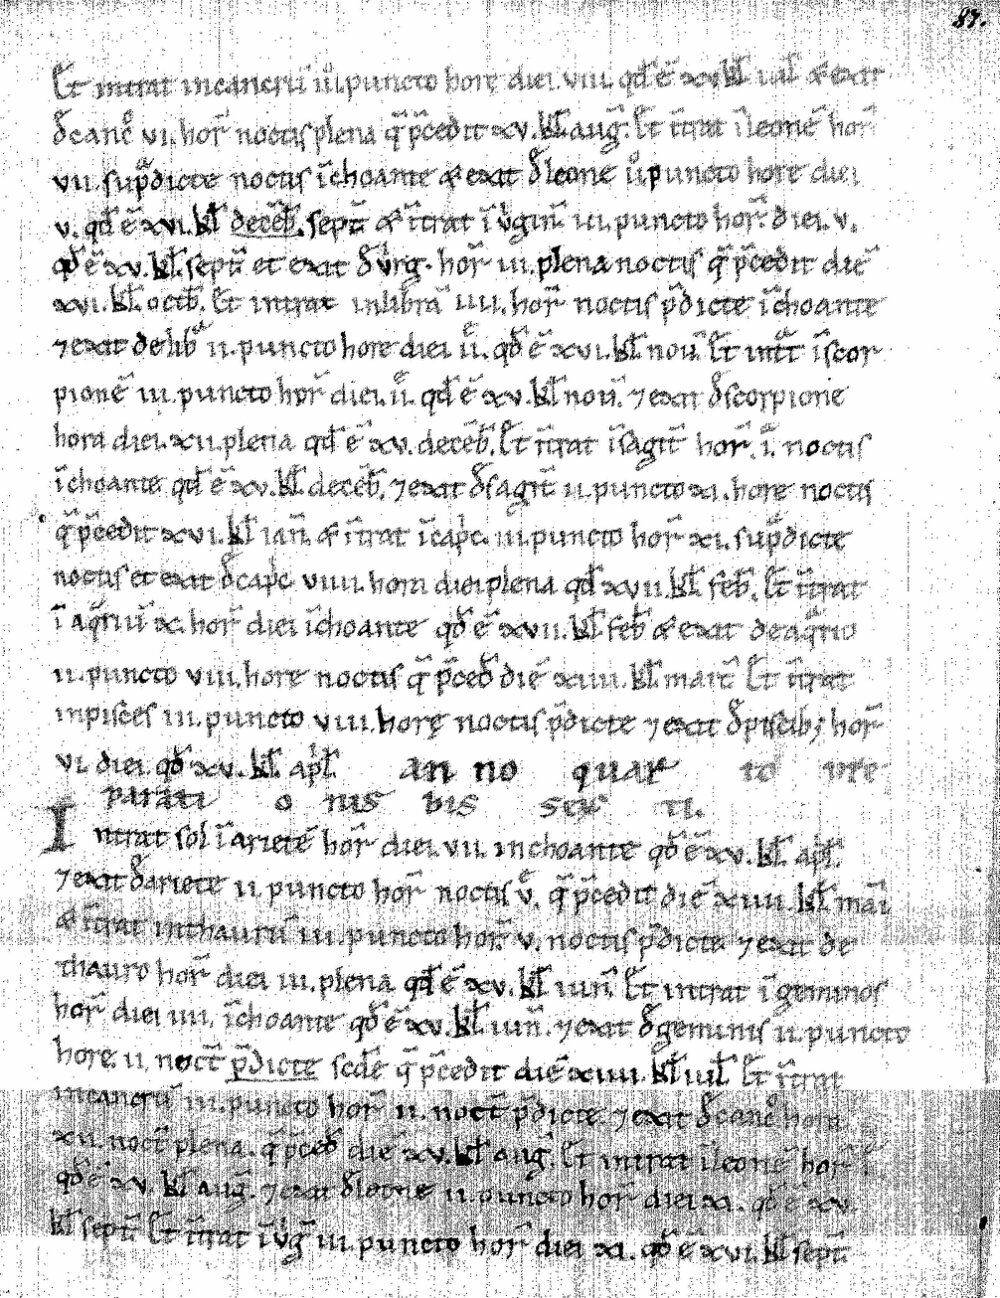 87.
Et intrat in cancrū iii. puncto horę diei viii. qđ ē xv kl iul & exit
đ canc̊ vi. hor̄ noctis plena q̄ p̄cedit xv. kl auḡ. Et īt̄rat ī leonē hor̄
vii. sup̄dicte noctis īchoante & exit đ leone ii. puncto hore diei
v. qđ ē xvi. kl decēb̄. sept̄ & īt̄rat ī v̊gin̄ iii. puncto hor̄. diei. v.
qđ ē xv. kl. sept̄ et exit đ virg. hor̄ iii. plena noctis q̄ p̄cedit diē
xvi. kl. octb̄. Et intrat in librā iiii. hor̄ noctis p̄dicte īchoante
⁊ exit de lib̄ ii. puncto hore diei ii. qđ ē xvi. kl nou̅. Et int̄t ī scor
pionē iii. puncto hor̄ diei. ii. qđ ē xv. kl nou̅. ⁊ exit đ scorpione
hora diei. xii. plena qđ ē xv. decēb̄. Et īt̄rat ī sagit̄ hor̄. i. noctis
īchoante qđ ē xv. kl decēb̄. ⁊ exit đ sagit̄ ii. puncto xi. hore noctis
q̄ p̄cedit xvi. kl ian̄. & īt̄rat ī cap̄c. iii. puncto hor̄ xi. sup̄dicte
noctis et exit đ cap̄c viiii. hora diei plena qđ xvii. kl feb̄. Et īt̄rat
ī aq̄riū x. hor̄ diei īchoante qđ ē xvii. kl feb̄ & exit de aq̄rio
ii. puncto viii. hore noctis q̄ p̄ceđ diē xiiii. kl mart̄ Et īt̄rat
in pisces iii. puncto viii. horę noctis p̄dicte ⁊ exit đ piscib; hor̄
vi. diei qđ xv. kl apl̄ an no quar to vre
parati o nis bis sex ti.
Intrat sol ī arietē hor̄ diei. vii. inchoante qđ ē xv. kl. apl̄.
⁊ exit đ ariete ii. puncto hor̄ noctis v. q̄ p̄cedit diē xiiii. kl mai
& īt̄rat in thaurū iii. puncto hor̄. v. noctis p̄dicte ⁊ exit de
thauro hor̄ diei iii. plena qđ ē xv. kl iun̄. Et intrat ī geminos
hor̄ diei iiii. īchoante qđ ē xv. kl iun̄. ⁊ exit đ geminis ii. puncto
hore. ii. noct̄ p̄dicte scđe q̄ p̄cedit diē xiiii. kl iul̄ Et īt̄rat
in cancrū iii. puncto hor̄ ii. noct̄ p̄dicte. ⁊ exit đ canc̊ hora
xii. noct̄ plena. q̄ p̄ceđ diē xv. kl auḡ. Et intrat ī leonē hor̄
qđ ē xv. kl auḡ. ⁊ exit đ leone ii. puncto hor̄ diei xi. qđ ē xv.
kl sept̄ Et īt̄rat ī v̊ḡ iii. puncto hor̄ diei xi. qđ ē xvi. kl sept̄